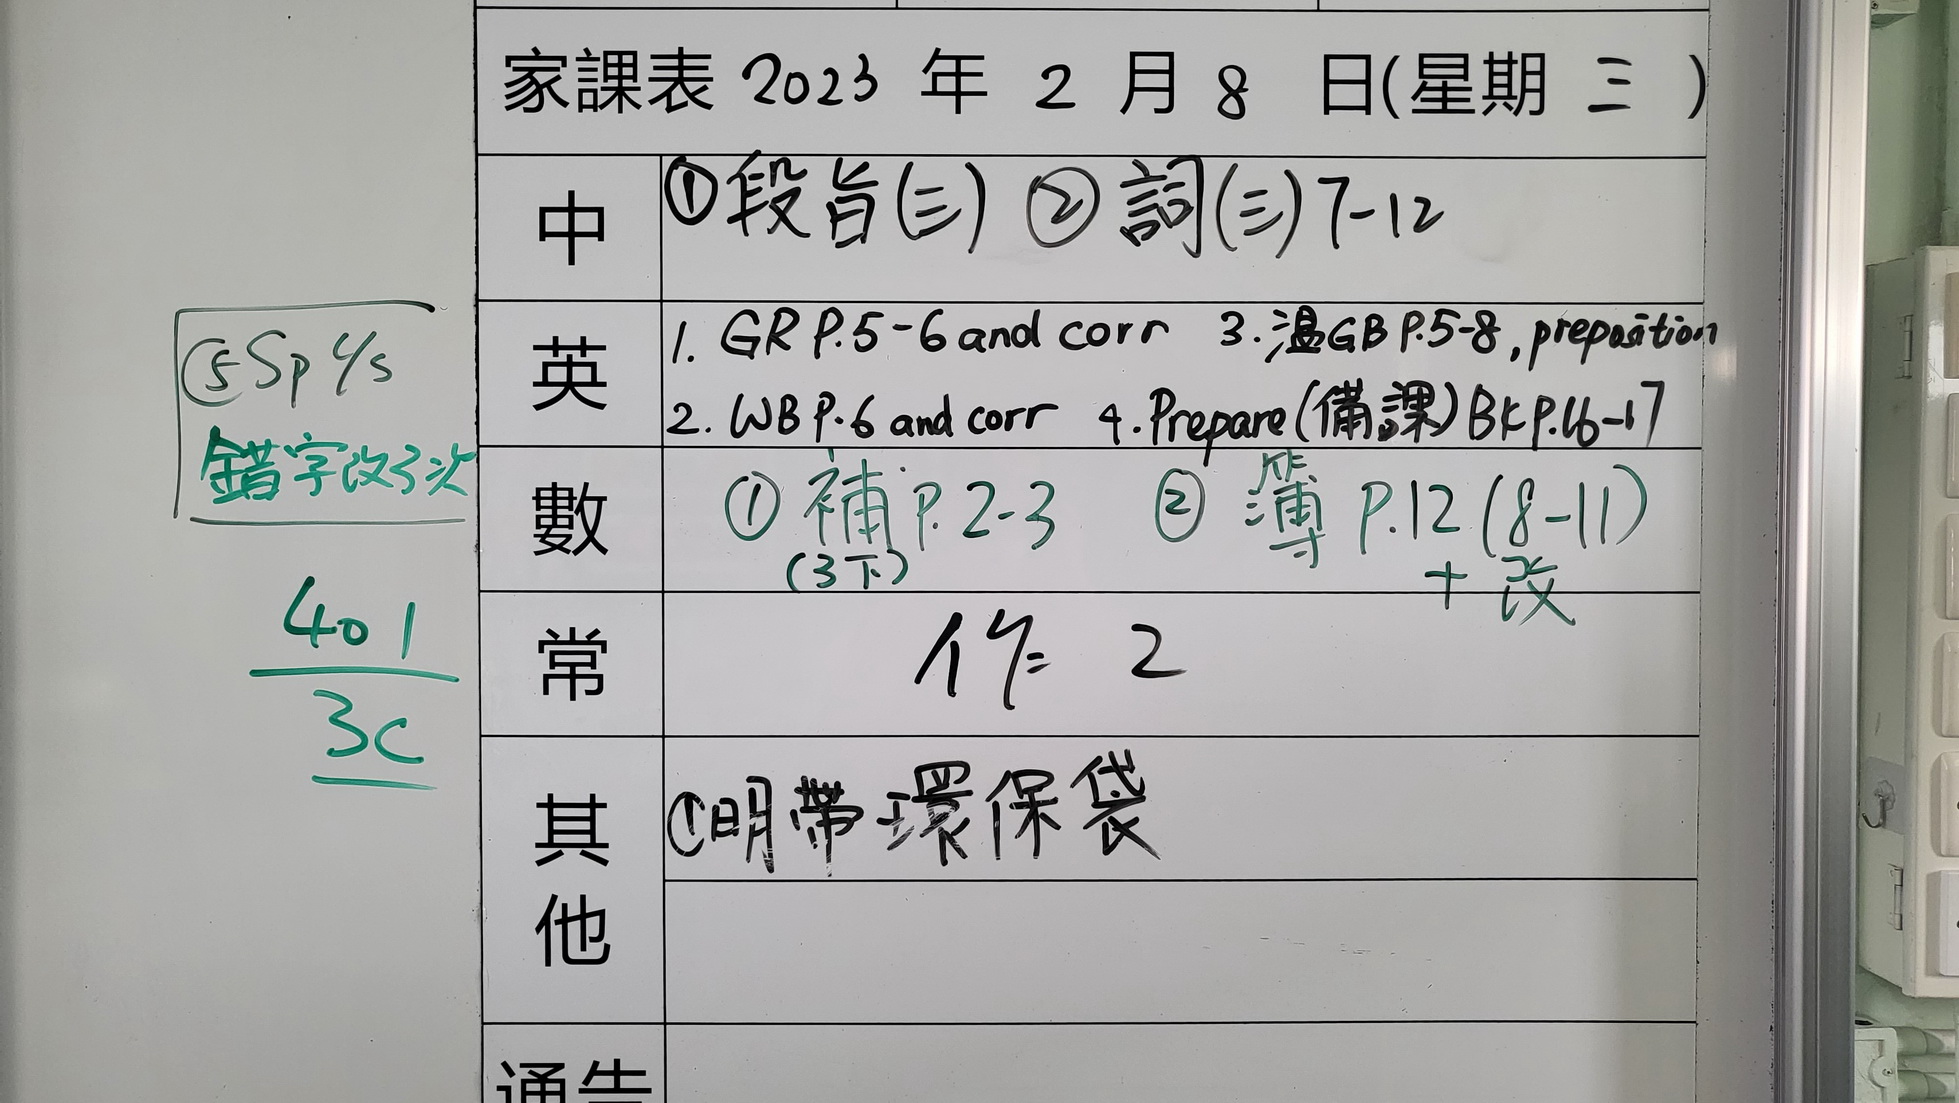 家課表 2023 年 2 月 8 日(星期 三 )
中 ①段旨(三) ②詞(三)7-12
英 1. GR P.5-6 and corr 3.溫GB P.5-8, preposition
2. WB P.6 and corr 4.Prepare(備課)BK P.16-17
數 ① 補 P.2-3 ② 簿 P.12 (8-11)
(3下) + 改
常 作 2
其他 ①明帶環保袋
通告
⑤Sp 4/5
錯字改3次
401
3C